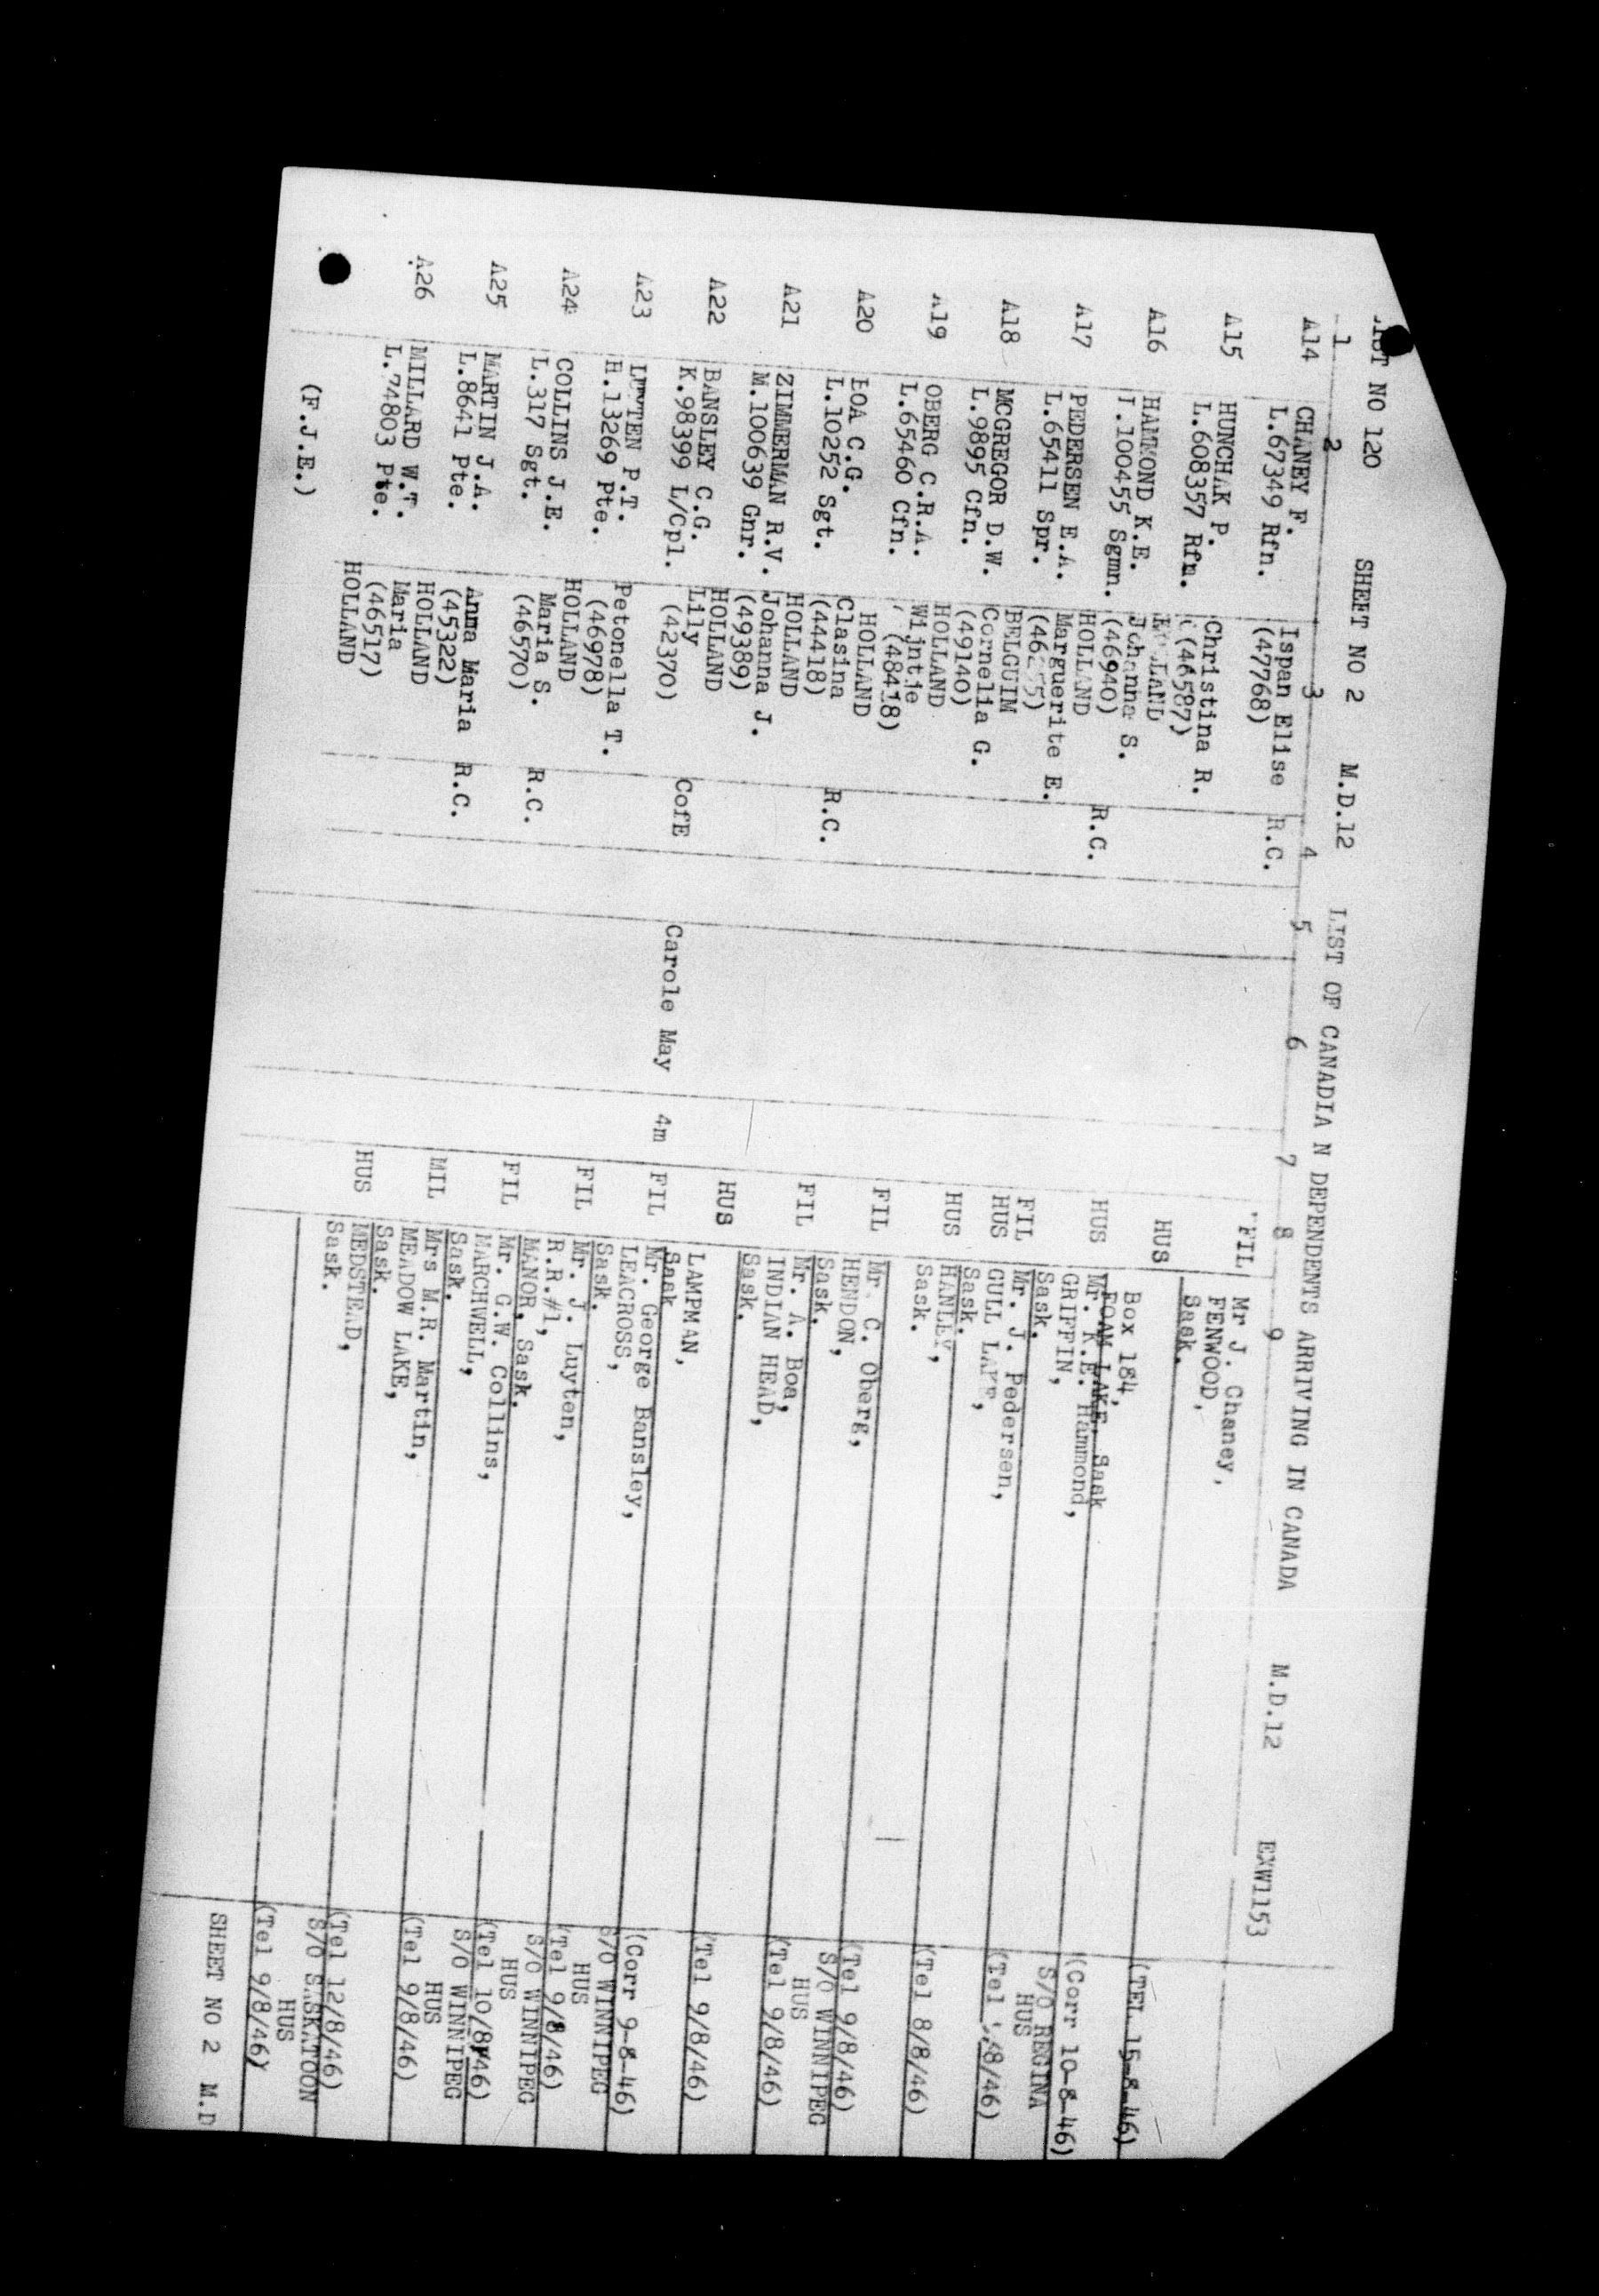 LIST NO 120 SHEET NO 2 M.D.12 LIST OF CANADIA N DEPENDENTS ARRIVING IN CANADA M.D.12 EXW1153
1 2 3 4 5 6 7 8 9
A14 CHANEY F. Ispan Elise R.C. FIL Mr J. Chaney,
L.67349 Rfn. (47768) FENWOOD,
Sask.
A15 HUNCHAK P. Christina R. HUS Box 184, (TEL 15-8-46)
L.608357 Rfn. (46587) FOAM LAKE, Sask
HOLLAND
A16 HAMMOND K.E. Johanna S. R.C. HUS Mr. R.E. Hammond, (Corr 10-8-46)
L.100455 Sgmn. (46940) GRIFFIN, S/O REGINA
HOLLAND Sask. HUS
A17 PEDERSEN E.A. Marguerite E. FIL Mr. J. Pedersen, (Tel 8/46)
L.65411 Spr. HUS GULL LAKE,
BELGUIM Sask.
A18 MCGREGOR D.W. Cornelia G. HUS HANLEY, (Tel 8/8/46)
L.9895 Cfn. (49140) Sask.
HOLLAND
A19 OBERG C.R.A. Wijntje FIL Mr. C. Oberg, (Tel 9/8/46)
L.65460 Cfn. (48418) HENDON, S/O WINNIPEG
HOLLAND Sask. HUS
A20 BOA C.G. Clasina R.C. FIL Mr. A. Boa, (Tel 9/8/46)
L.10252 Sgt. (44418) INDIAN HEAD,
HOLLAND Sask.
A21 ZIMMERMAN R.V. Johanna J. HUS LAMPMAN, (Tel 9/8/46)
M.100639 Gnr. (49389) Sask
HOLLAND
A22 BANSLEY C.G. Lily CofE Carole May 4m FIL Mr. George Bansley, (Corr 9-8-46)
K.98399 L/Cpl. (42370) LEACROSS, S/O WINNIPEG
Sask. HUS
A23 P.T. Petonella T. FIL Mr. J. Luyten, (Tel 9/8/46)
H.13269 Pte. (46978) R.R.#1, S/O WINNIPEG
HOLLAND MANOR, Sask. HUS
A24 COLLINS J.E. Maria S. R.C. FIL Mr. G.W. Collins, (Tel 10/8/46)
L.317 Sgt. (46570) MARCHWELL, S/O WINNIPEG
Sask. HUS
A25 MARTIN J.A. Anna Maria R.C. MIL Mrs M.R. Martin, (Tel 9/8/46)
L.8641 Pte. (45322) MEADOW LAKE,
HOLLAND Sask.
A26 MILLARD W.T. Maria HUS MEDSTEAD, (Tel 12/8/46)
L.74803 Pte. (46517) Sask. S/O SASKATOON
HOLLAND HUS
(Tel 9/8/46)
(F.J.E.)
SHEET NO 2 M.D